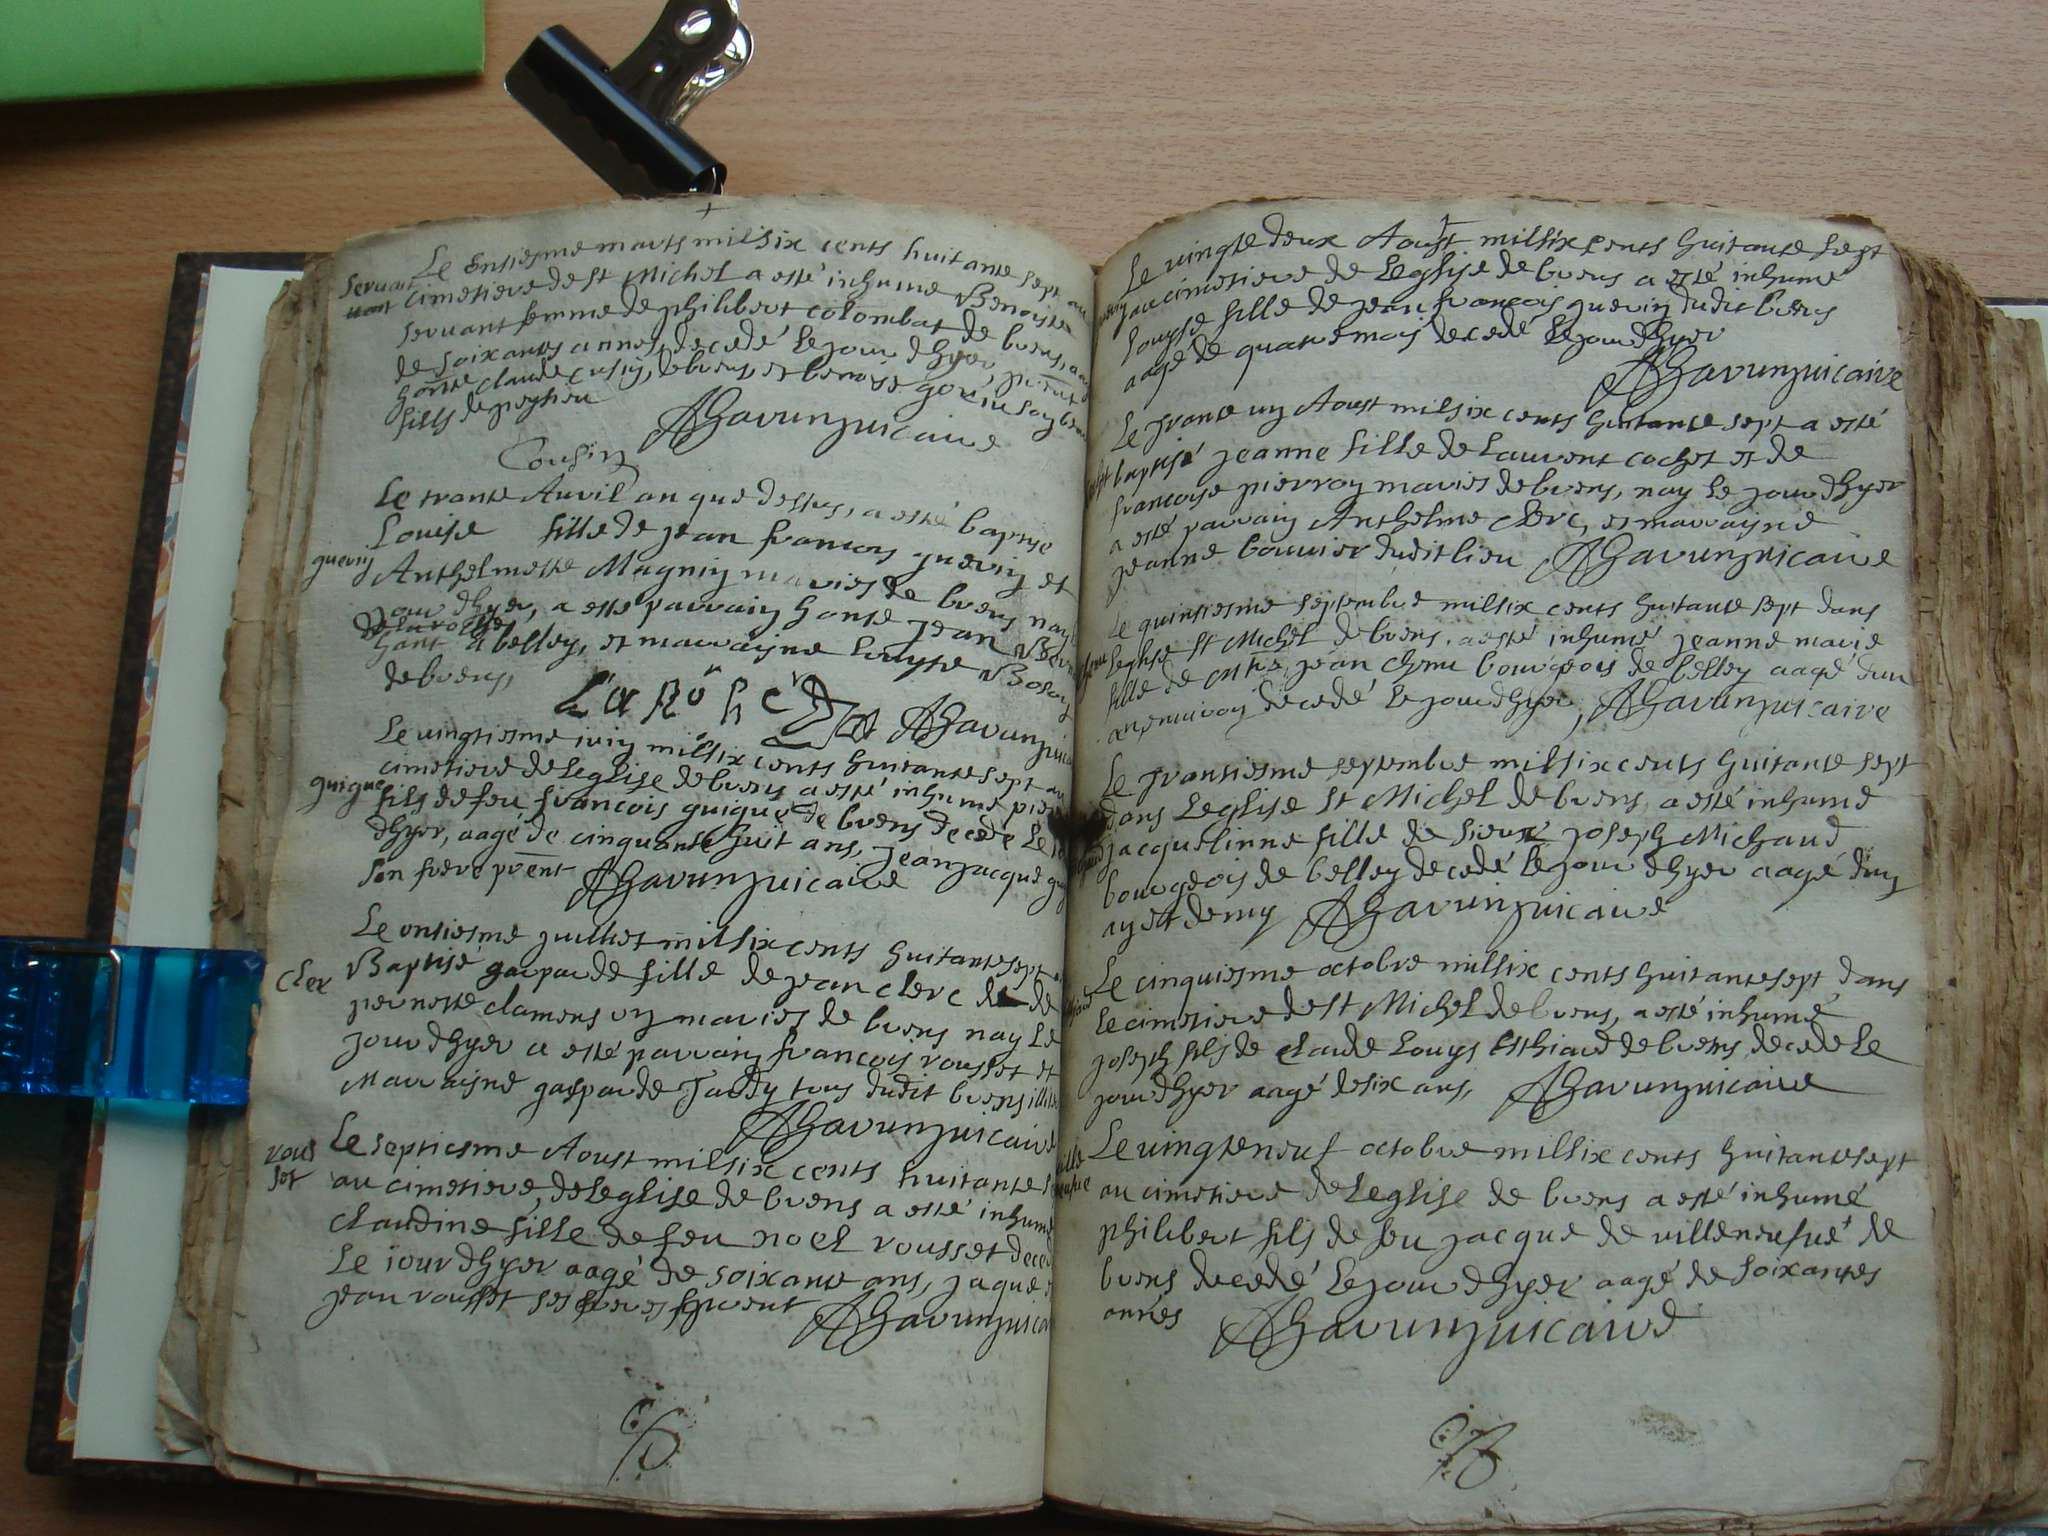 Le onsiesme marts mil six cents huitante sept au
servant
cimetiere de st Michel a esté inhume Benoiste
servant femme de philibert colombat de brens, aag
de soixantes annes, decedé le jour d'hyer, presents
honste claude cusin, de brens, et benoist
fills de peyrieu AGavunz vicaire
Cousin
Le trante Auvil an que dessus, a esté baptise
Louise fille de jean francois guerin et
guerin
Anthelmette Magnin maries de brens nay
jour d'hyer, a esté parrain honste jean
a belley, et marraine louyse
de brens, AGavunz vic
Le vingtiesme iuin mil six cents huitante sept au
cimetiere de leglise de brens a esté inhumé pier
guigue
fils de feu francois guigue de brens decede le jo
d'hyer, aagé de cinquante huit ans, jean jacque gui
son frere pnt AGavunz vicaire
Le onsiesme juillet mil six cents huitante sept a
Clex
Baptisé gaspade fille de jean clerc de
pernette clamens maries de brens nay le
jour d'hyer a esté parrain francois rousset et
Marraine gaspade Tardy tous dudit brens
AGavunz vicaire
Le septiesme Aoust mil six cents huitante s
rous
set
au cimetiere, de leglise de brens a esté inhumé
claudine fille de feu noel rousset deced
Le iour d'hyer aagé de soixante ans, jaque e
jean rousset ses freres present AGavunz vica
Le vingte deux Aoust mil six cents huitante sept
au cimetiere de leglise de brens a esté inhume
louyse fille de jean francois guerin dudit brens
aagé de quatre mois decedé le jour d'hyer
AGavunz vicaire
Le trante un Aoust mil six cents huitante sept a esté
baptisé jeanne fille de laurent cochet et de
francoise pierron maries de brens, nay le jour d'hyer
a esté parrain Anthelme clerc, et marraine
jeanne bouvier dudit lieu AGavunz vicaire
Le quinsiesme septembre mil six cents huitante sept dans
leglise st Michel de brens, a esté inhumé jeanne marie
fille de jean chenu bourgeois de belley aagé dun
an environ decedé le jour d'hyer, AGavunz vicaire
Le trantiesme septembre mil six cents huitante sept
dans leglise st Michel de brens a esté inhumé
jacquelinne fille de sieur joseph Michaud
bourgeois de belley decedé le jour d'hyer aagé dun
an et demy AGavunz vicaire
Le cinquiesme octobre mil six cents huitante sept dans
le cimetiere de st Michel de brens, a esté inhumé
joseph fils de claude louys de brens decede le
jour d'hyer aagé de six ans, AGavunz vicaire
Le vingte neuf octobre mil six cents huitante sept
au cimetiere de leglise de brens a esté inhumé
philibert fils de feu jacque de villeneufue de
brens decedé le jour d'hyer aagé de soixantes
annes AGavunz vicaire